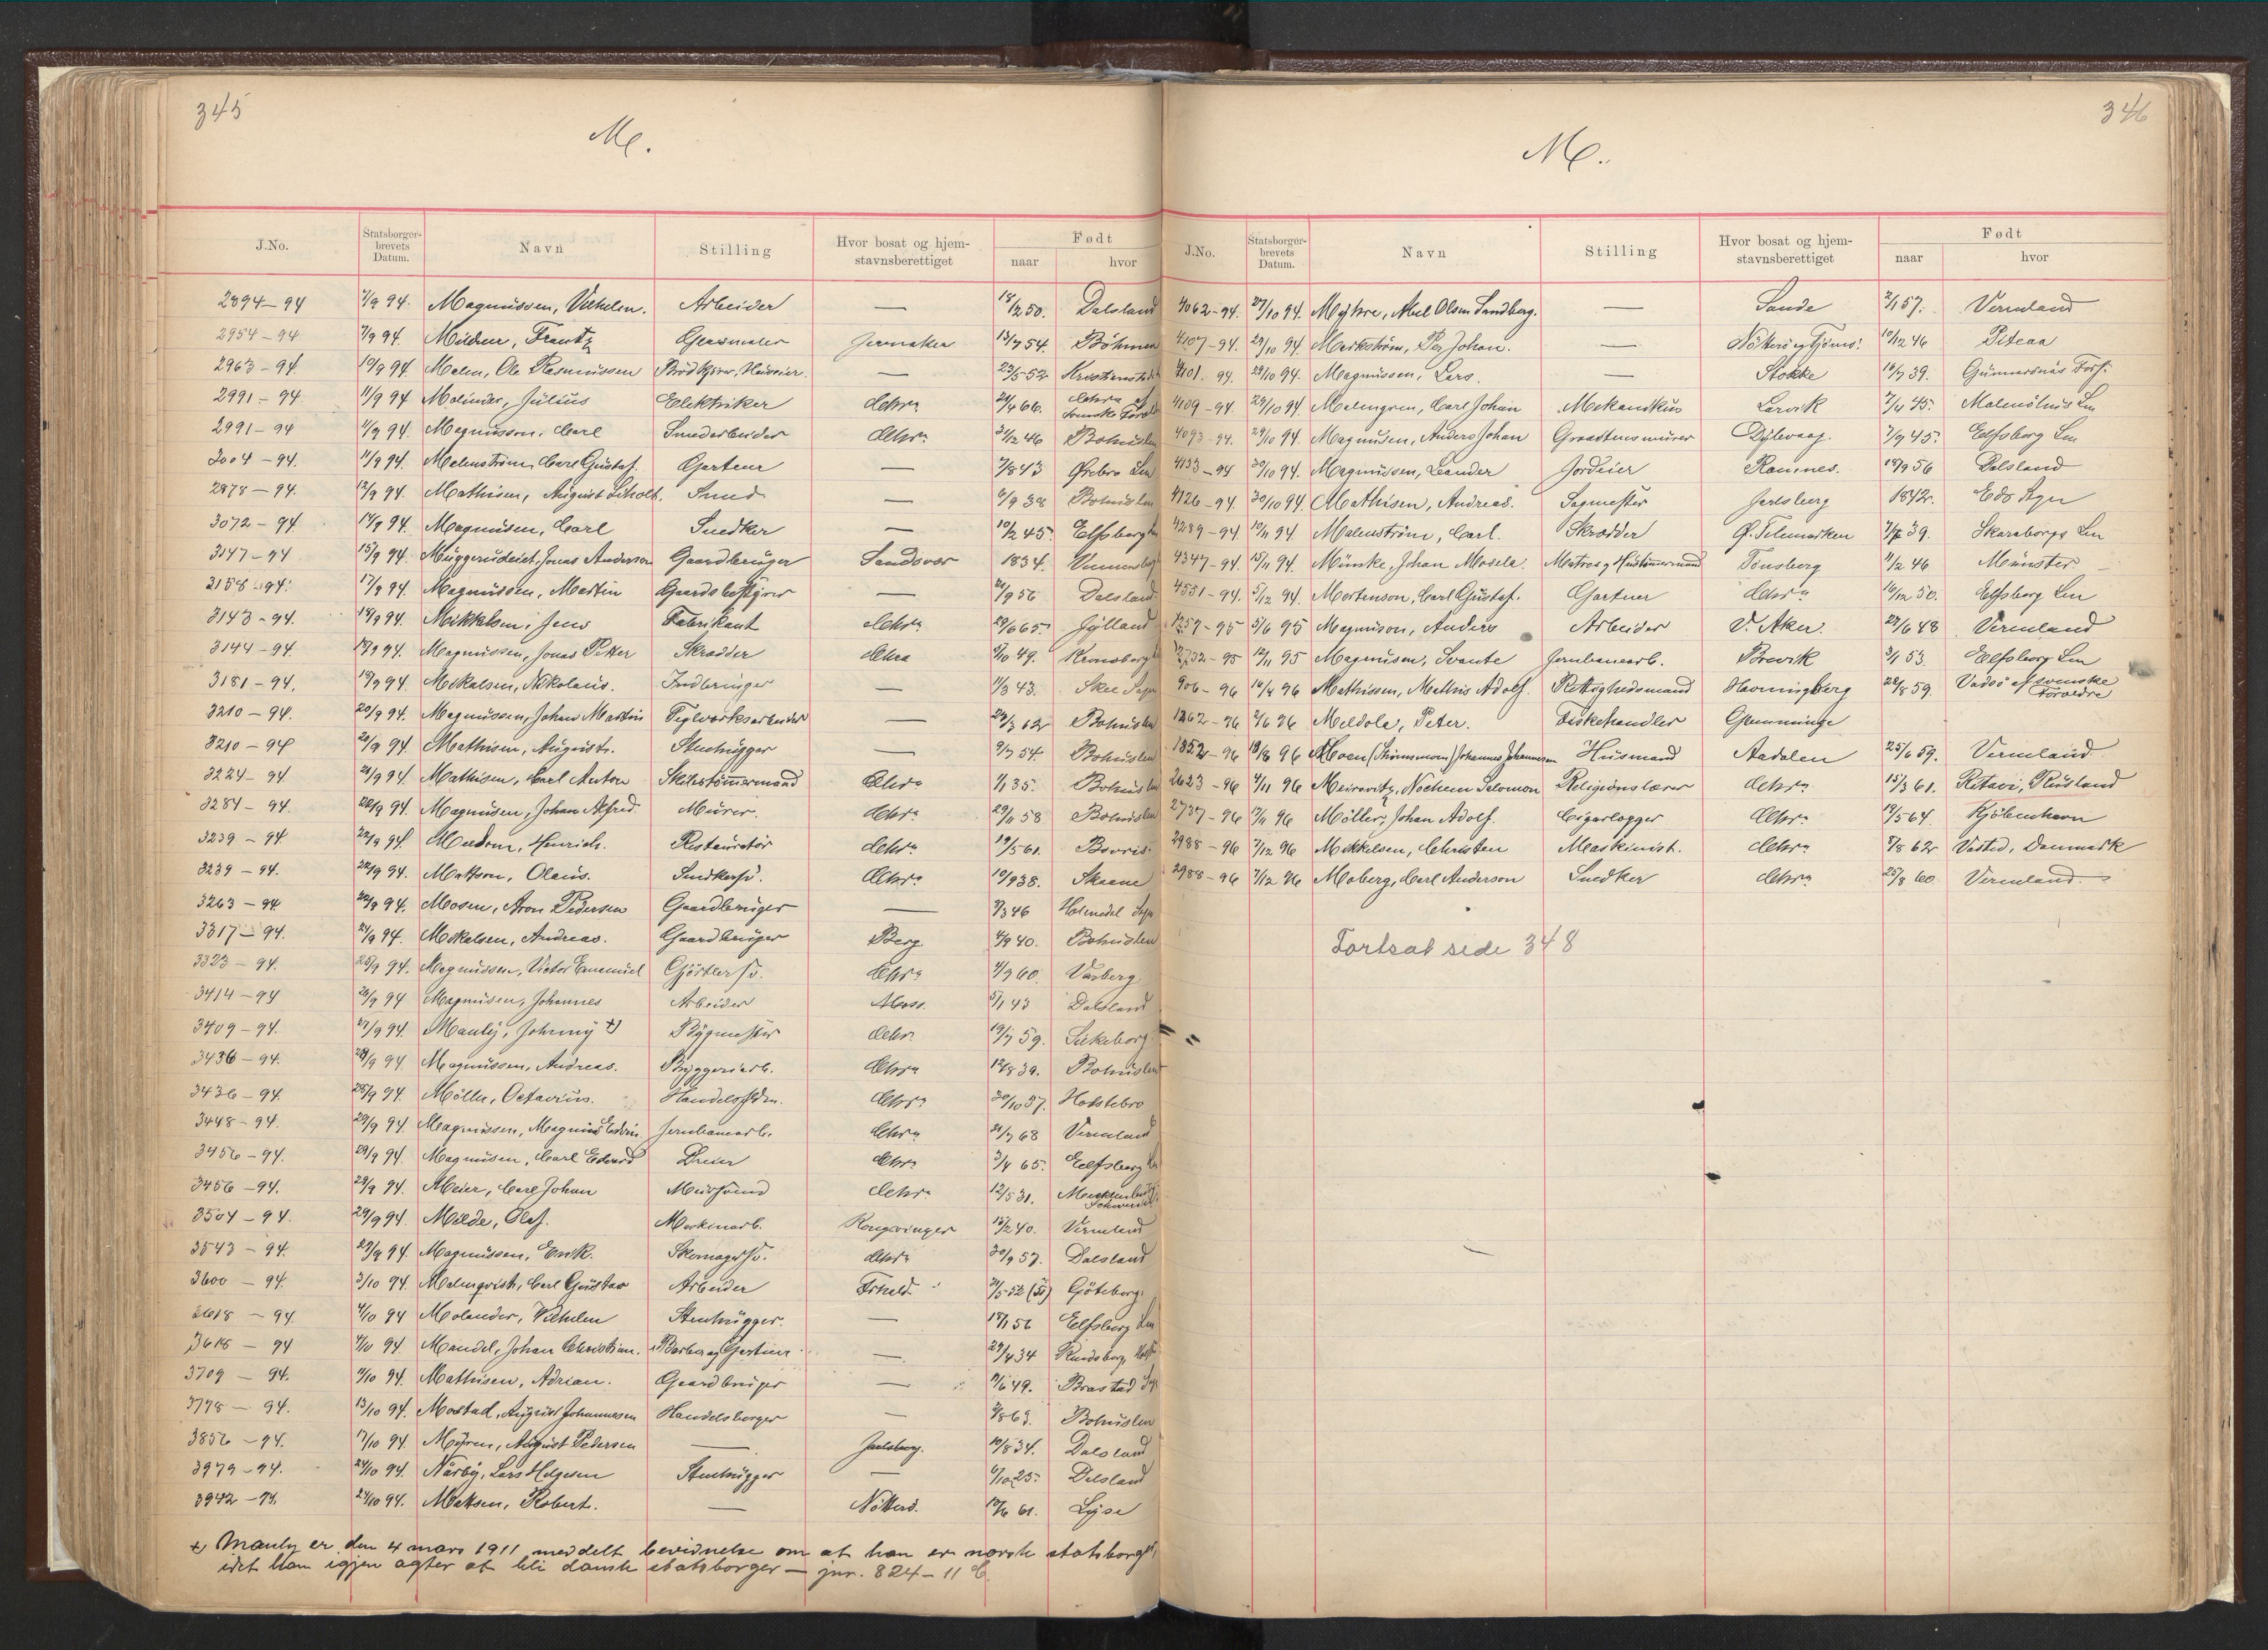 345
M.
J.No. Statsborger-brevets Datum. Navn Stilling Hvor bosat og hjem-stavnsberettiget Født naar hvor
2894-94 7/9 94. Magnussen, Vilhelm. Arbeider — 18/2 50. Dalsland
2954-94 7/9 94. Mildner, Frantz Glasmaler Jevnaker 13/7 54. Böhmen
2963-94 10/9 94 Malm, Ole Rasmussen — 23/5 52
2991-94 11/9 94 Molinder, Julius Elektriker Chra 21/4 66. Chra af svenske
2991-94 11/9 94. Magnusson, Carl Smedarbeider Chra 31/12 46 Bohuslen
3004-94. 11/9 94. Malmström, Carl Gustaf. Gartner — 7/8 43 Örebro Len
2878-94. 12/9 94. Mathisen, August Smed — 6/9 38 Bohuslen
3072-94 14/9 94. Magnusen, Carl Snedker — 10/2 45. Elfsborg
3147-94 15/9 94. Jonas Anderson Gaardbruger Sandsvær 1834.
3158-94. 17/9 94. Magnussen, Martin Gaardsbestyrer — 21/9 56 Dalsland
3143-94. 18/9 94. Mikkelsen, Jens Fabrikant Chra 29/6 65. Jylland
3144-94. 18/9 94. Magnussen, Jonas Petter Skrædder Chra 5/10 49. Kronoberg
3181-94. 18/9 94. Mikalsen, Nikolaus. Indbringer — 11/3 43. Skee Sogn
3210-94. 20/9 94. Magnussen, Johan Martin Teglverksarbeider — 23/3 62 Bohuslen
3210-94 20/9 94. Mathisen, August. Stenhugger — 9/7 54. Bohuslen
3224-94 21/9 94. Mathisen, Carl Anton Skibstømmermand Chra 1/1 35. Bohuslen
3284-94. 22/9 94. Magnusen, Johan Alfred. Murer. Chra 29/11 58 Bohuslen
3239-94. 22/9 94. Henrich. Restauratør Chra 19/5 61.
3239-94. 22/9 94. Mattson, Olaus. Snedkersv. Chra 10/9 38. Skaane
3263-94 22/9 94. Mosen, Aron Pedersen Gaardbruger — 3/3 46 Holmedal Sogn
3317-94. 24/9 94. Mikalsen, Andreas. Gaardbruger Berg 4/9 40. Bohuslen
3323-94. 25/9 94. Magnussen, Victor Emanuel Gjörtlersv. Chra 4/9 60. Varberg
3414-94 26/9 94 Magnusen, Johannes Arbeider Moss. 5/1 43 Dalsland
3409-94. 27/9 94. Manly, Johnny +) Bygmester Chra 19/7 59. Silkeborg.
3436-94. 28/9 94. Magnussen, Andreas. Bryggeriarb. Chra 12/8 39. Bohuslen
3436-94. 28/9 94. Möller, Octavius. Handelsfuldm. Chra 30/10 57. Holstebro
3448-94. 29/9 94. Magnussen, Magnus Edvin Jernbanearb. Chra 21/7 68 Vermland
3456-94. 29/9 94. Magnusen, Carl Edvard Dreier Chra 3/4 65. Elfsborg Len
3456-94. 29/9 94. Meier, Carl Johan Chra 12/5 31. Mecklenburg Schwerin
3504-94. 29/9 94. Milde, Olaf. Maskinarb. Kongsvinger 15/2 40. Vermland
3543-94. 29/9 94. Magnussen, Erik. Skomagersv. Chra 30/9 57. Dalsland
3600-94. 3/10 94. Malmqvist, Carl Gustav Arbeider Frhald. 31/5 52 (51) Göteborg.
3618-94. 4/10 94 Molander, Vilhelm Stenhugger. — 18/1 56 Elfsborg Len
3618-94 4/10 94. Mandel, Johan Christian. Barber og Gartner — 29/4 34
3709-94. 9/10 94. Mathisen, Adrian. Gaardbruger — 11/6 49. Brastad Sogn
3778-94. 13/10 94. Mostad, August Johannesen Handelsborger — 2/8 63. Bohuslen
3856-94. 17/10 94. Myren, August Pedersen — Jarlsberg. 10/8 34. Dalsland
3979-94. 24/10 94. Närby, Lars Helgesen Stenhugger — 6/10 25. Dalsland
3942-94. 24/10 94. Matsen, Robert. — Nötterö. 17/6 61. Lyse
+) Manly er den 4 mars 1911 meddelt bevidnelse om at han er norsk statsborger,
idet han igjen agter at bli dansk statsborger — jnr. 824-11 C.
346
M.
J.No. Statsborger-brevets Datum. Navn Stilling Hvor bosat og hjem-stavnsberettiget Født naar hvor
4062-94. 27/10 94. Myhre, Axel Olsen Sandberg. — Sande 2/1 57. Vermland
4107-94. 29/10 94. Markström, Per Johan. — Nötterö og Tjømö. 10/12 46 Piteaa
4101-94. 29/10 94. Magnussen, Lars. — Stokke 16/7 39. Gunnarsnäs Fors.
4109-94. 29/10 94. Malmgren, Carl Johan Mekanikus Larvik 7/4 45. Malmöhus Len
4093-94. 29/10 94. Magnusen, Anders Johan Graastensmurer Dybvaag. 7/9 45. Elfsborg Len
4133-94 30/10 94. Magnussen, Leander Jordeier Ramnes. 18/9 56 Dalsland
4126-94. 30/10 94. Mathisen, Andreas. Sagmester Jarlsberg 1842. Eds Sogn
4289-94 10/11 94 Malmström, Carl. Skrædder Ø. Telemarken 7/7 39. Skaraborgs Len
4347-94. 15/11 94. Münske, Johan Mosela. Matros og Hustømmermand Tönsberg 11/2 46 Münster
4551-94. 5/12 94. Mortenson, Carl Gustaf. Gartner Chra 16/12 50. Elfsborg Len
1259-95 5/6 95 Magnuson, Anders Arbeider V. Aker. 27/6 48 Vermland
2732-95 12/11 95 Magnusen, Svante Jernbanearb. Brevik 3/1 53. Elfsborg Len
906-96 16/4 96 Mathissen, Mathis Adolf. Rettighedsmand Havningberg 22/8 59. Vadsö af svenske Forældre
1262-96 2/6 96 Meldola, Peter. Fiskehandler Grimminge
1852-96 18/8 96 Moen (Thømmesmoen) Johannes Johannesen Husmand Aadalen 25/6 59. Vermland
2623-96 4/11 96 Meirovitz, Nochem Salomon Religionslærer Chra 15/3 61. Ritavi, Rusland
2737-96 17/11 96 Möller, Johan Adolf. Cigarlægger Chra 18/5 64. Kjöbenhavn
2988-96 7/12 96 Mikkelsen, Christen Maskinist. Chra 8/8 62 Vested, Danmark
2988-96 7/12 96 Moberg, Carl Anderson Snedker Chra 25/8 60 Vermland.
Fortsat side 348